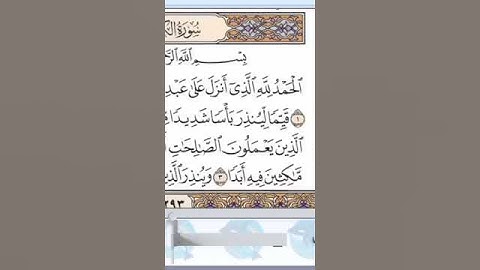 سُورَةُ
بِسْمِ اللَّهِ
الْحَمْدُ لِلَّهِ الَّذِي أَنزَلَ عَلَىٰ
١ قَيِّمًا لِّيُنذِرَ بَأْسًا شَدِيدًا
الَّذِينَ يَعْمَلُونَ الصَّالِحَاتِ
مَّاكِثِينَ فِيهِ أَبَدًا ٣ وَيُنذِرَ الَّذِي
٢٩٣